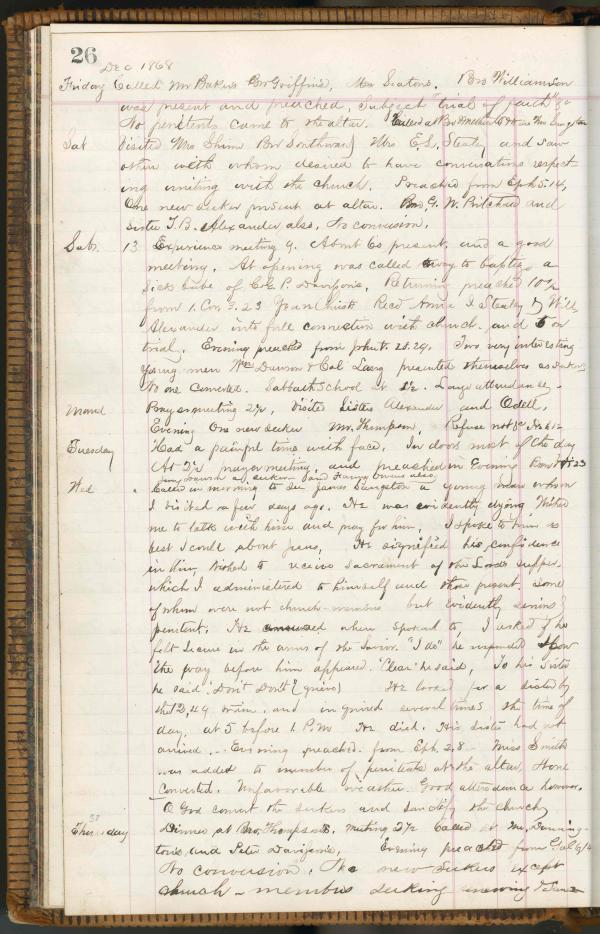 26
Dec 1868
Friday Called Mr Bakers Bro Griffins, Mr Seatons. Bro Williamson
was present and preached, Subject "trial of faith" &c
No penitents came to the altar. Called at Bro
Sat Visited Mrs Shinn Bro Southward Mrs E. L. Stealy and saw
others with whom desired to have conversation respect
ing uniting with the church. Preached from Eph 5.14,
One new seeker present at altar. Bro. G. W. Pritchard and
Sister T. B. Alexander also, No conversion.
Sab. 13 Experience meeting 9. About 60 present, and a good
meeting. At opening was called away to baptize a
sick babe of C & P. Davisons, Returning preached 10½
from 1. Cor. 3.23 Rec'd Anna I Stealey & Will
Alexander into full connection with church and 5 on
trial. Evening preached from John 1. 28.29. Two very interesting
young men Wm Dawson & Cal Lang presented themselves as seekers
No one Converted. Sabbath School at 1½. Large attendance.
Mond Prayer meeting 2½, Visited Sisters Alexander and Odell,
Evening One new seeker Mr. Thompson, Refuse not &c Heb 12
Tuesday Had a painful time with face. In doors most of the day
At 2½ prayer meeting, and preached in Evening 23
a seeker and Fanny also
Wed Called in morning to see James Langston a young man whom
I visited a few days ago. He was evidently dying Wished
me to talk with him and pray for him, I spoke to him as
best I could about Jesus, He signified his confidence
in Him, Wished to receive sacrament of the Lord's supper.
which I administered to himself and those present. Some
of whom were not church members but evidently serious &
penitent. He when spoken to, I asked if he
felt secure in the arms of the Savior. "I do" he responded How
the way before him appeared. "Clear" he said, To his Sister
he said "Don't Don't" (grieve) He looked for a sister by
the 12,49 train. and inquired several times the time of
day, at 5 before 1. P.M He died. His sister had not
arrived. Evening preached. from Eph. 2,8 Miss Smith
was added to number of penitents at the altar, None
Converted. Unfavorable weather. Good attendance however.
O God convert the seekers and sanctify the church
Thursday Dinner at Bro. Thompsons. meeting 2½ Called at Mr. Penning-
tons and Peter Davisons, Evening preached from Gal 6/14
No conversion. No new seekers except
church members seeking